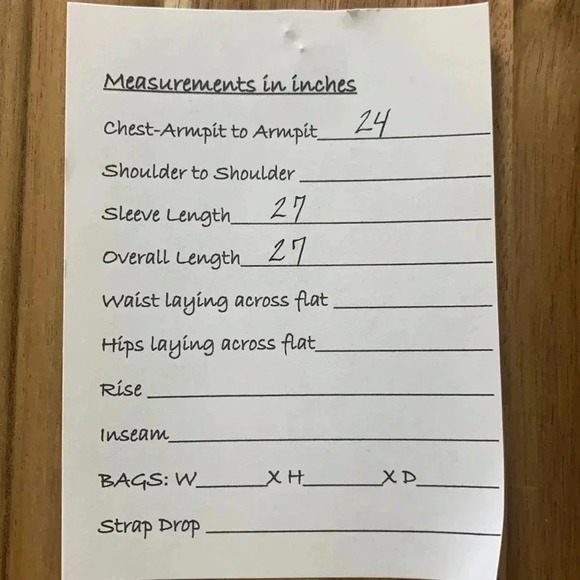 Measurements in inches
Chest-Armpit to Armpit 24
Shoulder to Shoulder
Sleeve Length 27
Overall Length 27
Waist laying across flat
Hips laying across flat
Rise
Inseam
BAGS: W______X H______X D______
Strap Drop